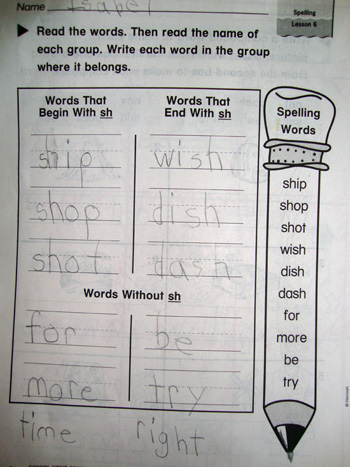 Name Isabel
Spelling
Lesson 6
Read the words. Then read the name of
each group. Write each word in the group
where it belongs.
Words That
Begin With sh
ship
shop
shot
Words That
End With sh
wish
dish
dash
Words Without sh
for be
more try
time right
Spelling
Words
ship
shop
shot
wish
dish
dash
for
more
be
try
© Harcourt